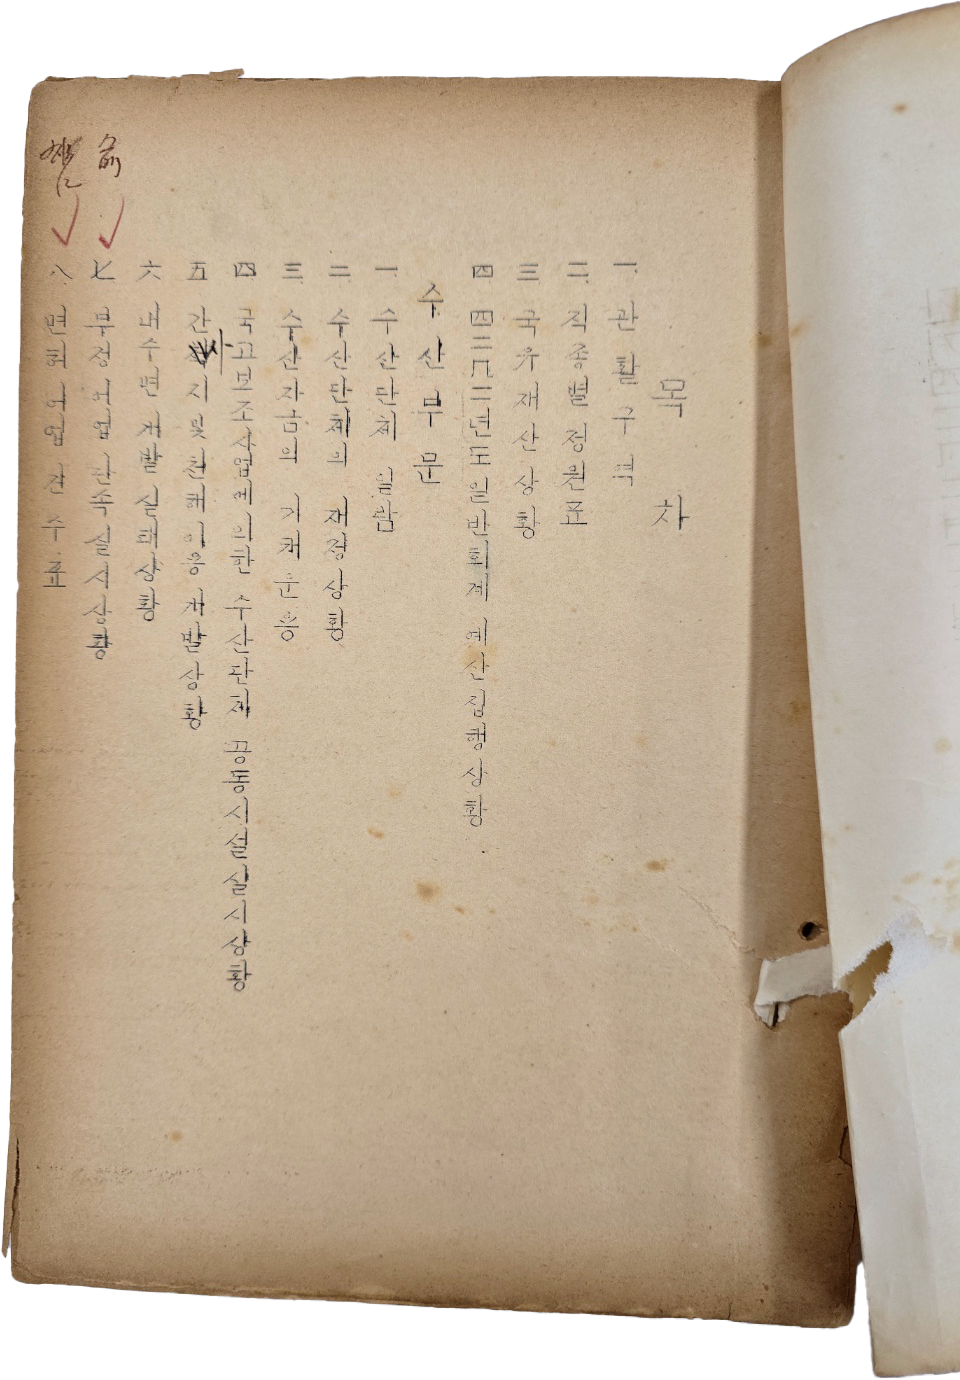 목차
一. 관할구역
二. 직종별정원표
三. 국유재산상황
四. 四二九二년도 일반회계 예산집행상황
수산부문
一. 수산단체 일람
二. 수산단체의 재정상황
三. 수산자금의 기채운용
四. 국고보조사업에의한 수산단체 공동시설실시상황
五. 간사시및천해이용개발상황
六. 내수면개발실태상황
七. 부정어업단속실시상황
八. 면허어업건수표